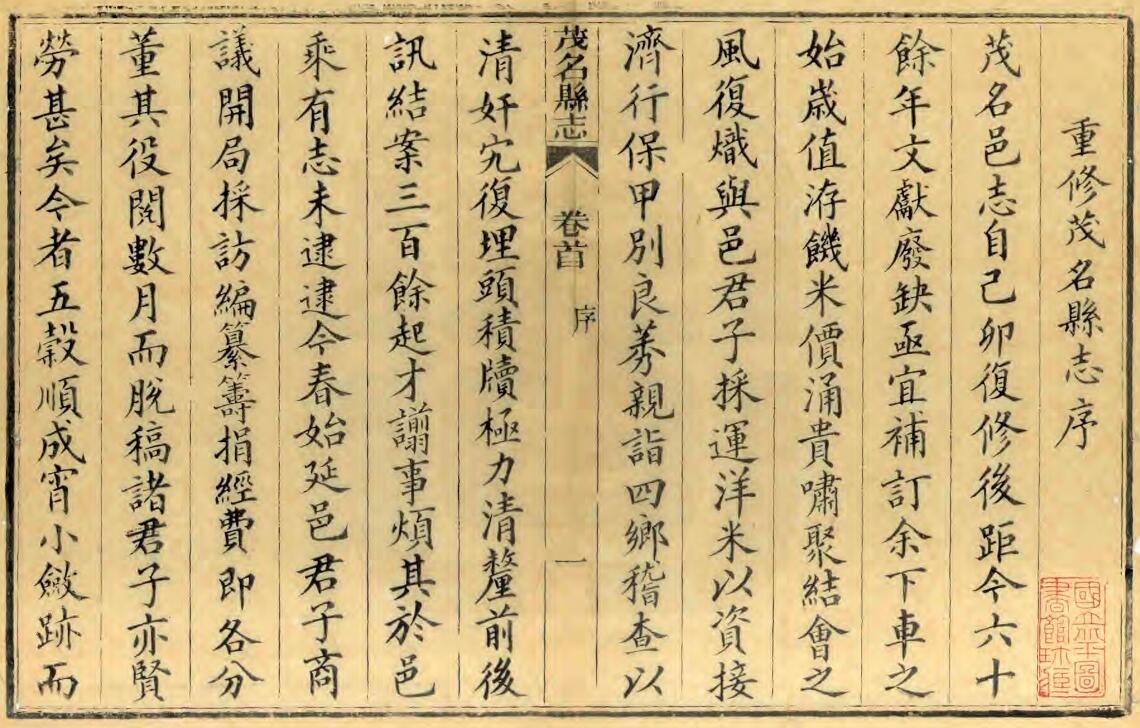 重修茂名縣志序
茂名邑志自己卯復修後距今六十
餘年文獻廢缺亟宜補訂余下車之
始歲值洊饑米價涌貴嘯聚結會之
風復熾與邑君子採運洋米以資接
濟行保甲別良莠親詣四鄉稽查以
茂名縣志 卷首 序 一
清奸宄復埋頭積牘極力清釐前後
訊結案三百餘起才譾事煩其於邑
乘有志未逮逮今春始延邑君子商
議開局採訪編纂籌捐經費即各分
董其役閱數月而脫稿諸君子亦賢
勞甚矣今者五穀順成宵小斂跡而